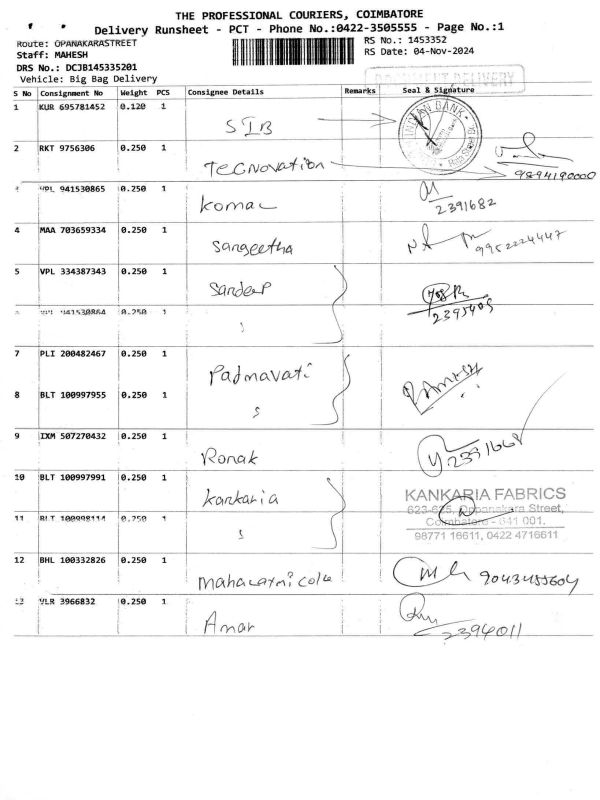 THE PROFESSIONAL COURIERS, COIMBATORE
Delivery Runsheet - PCT - Phone No.:0422-3505555 - Page No.:1
Route: OPANAKARASTREET
RS No.: 1453352
Staff: MAHESH
RS Date: 04-Nov-2024
DRS No.: DCJB145335201
Vehicle: Big Bag Delivery
DOCUMENT DELIVERY
S No Consignment No Weight PCS Consignee Details Remarks Seal & Signature
1 KUR 695781452 0.120 1 SIB INDIAN BANK
2 RKT 9756306 0.250 1 Tecnovation 9894190000
3 VPL 941530865 0.250 1 Komal 2391682
4 MAA 703659334 0.250 1 Sangeetha 9952224447
5 VPL 334387343 0.250 1 Sandeep
6 VPL 941530864 0.250 1 2395405
7 PLI 200482467 0.250 1 Padmavati RAMESH
8 BLT 100997955 0.250 1
9 IXM 507270432 0.250 1 Ronak 2391668
10 BLT 100997991 0.250 1 Kankaria KANKARIA FABRICS
623-625, Oppanakara Street,
11 BLT 100998114 0.250 1 Coimbatore - 641 001.
98771 16611, 0422 4716611
12 BHL 100332826 0.250 1 Mahalaxmi 9043455604
13 VLR 3966832 0.250 1 Amar 2394011